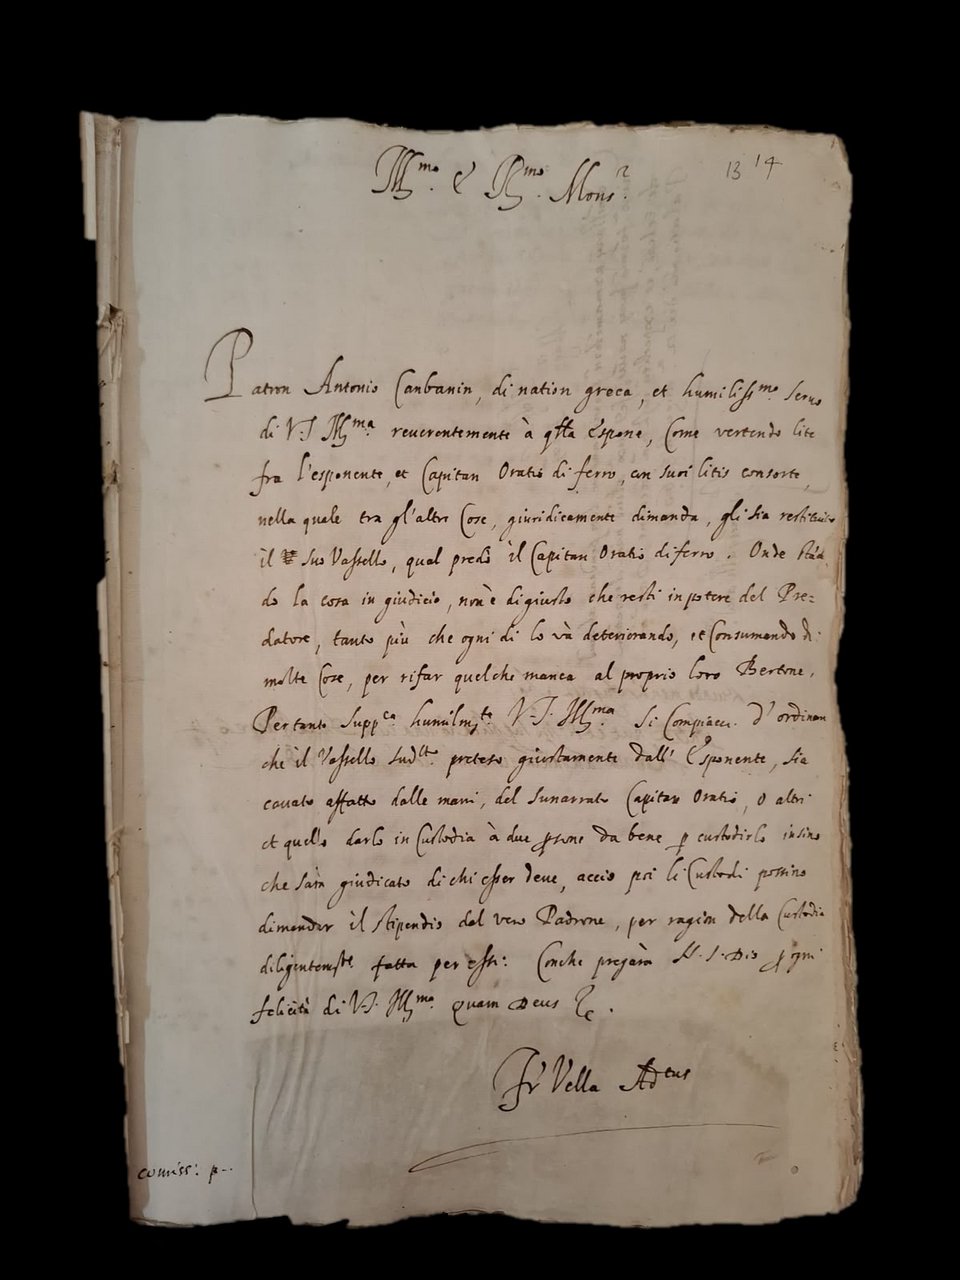 Ill.mo & R.mo Mons.r
13 14
Patron Antonio Canbanin, di nation greca, et humiliss.mo servo
di V.S Ill.ma reverentemente à q.lla Espone, Come vertendo lite
fra l'esponente, et Capitan Oratio di ferro, con suoi litis consorte,
nella quale tra gl'altre Cose, giuridicamente dimanda, gli sia restituito
il suo Vassello, qual predò il Capitan Oratio di ferro. Onde stãn
do la cosa in giudicio, non è di giusto che resti in potere del Pre=
datore, tanto più che ogni di lo và deteriorando, et Consumando di
molte Cose, per rifar quelche manca al proprio loro Bertone,
Pertanto supp.ca humilm.te V.S. Ill.ma si Compiacci d'ordinare
che il Vassello sud.tto preteso giustamente dall' Esponente, sia
cavato affatto dalle mani, del sunarrato Capitan Oratio, o altri
et quello darlo in Custodia à due p̱sone da bene p̱ custodirlo insino
che sarà giudicato di chi esser deve, accio poi li Custodi possino
dimandar il stipendio dal vero Padrone, per ragion della Custodia
diligentem.te fatta per essi: Conche pregarà N.S. Dio p̱ ogni
felicità di V.S. Ill.ma Quam Deus &c.
Fr Vella Ad.tus
comiss: p--